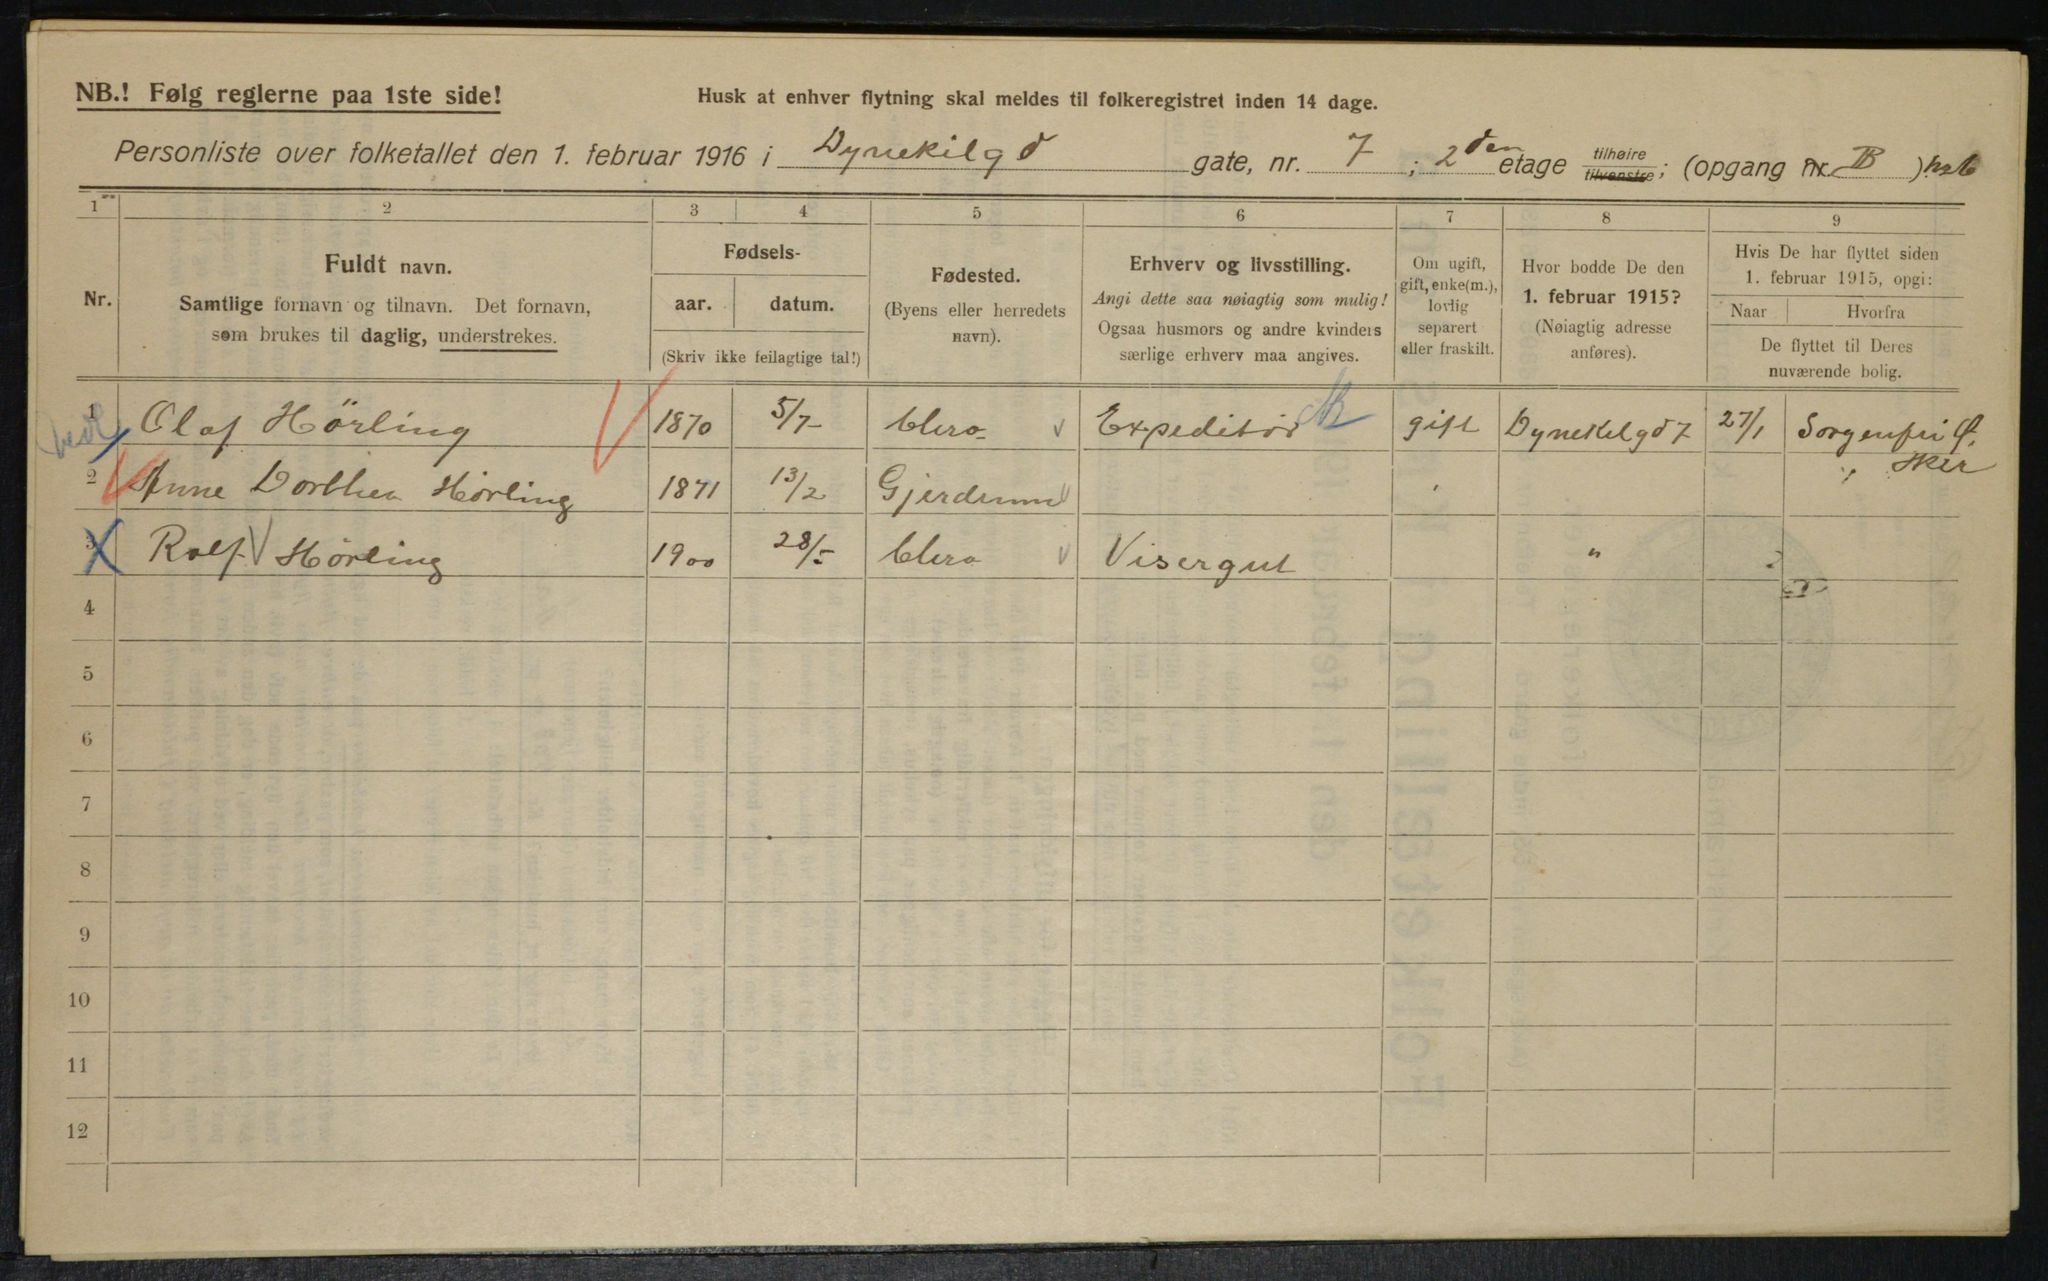 NB.! Følg reglerne paa 1ste side!
Husk at enhver flytning skal meldes til folkeregistret inden 14 dage.
Personliste over folketallet den 1. februar 1916 i Dynekilgd gate, nr. 7 ; 2den etage tilhøire tilvenstre; (opgang nr. B )
1 2 3 4 5 6 7 8 9
Nr.
Fuldt navn.
Samtlige fornavn og tilnavn. Det fornavn,
som brukes til daglig, understrekes.
Fødsels-
aar. datum.
(Skriv ikke feilagtige tal!)
Fødested.
(Byens eller herredets
navn).
Erhverv og livsstilling.
Angi dette saa nøiagtig som mulig!
Ogsaa husmors og andre kvinders
særlige erhverv maa angives.
Om ugift,
gift, enke(m.),
lovlig
separert
eller fraskilt.
Hvor bodde De den
1. februar 1915?
(Nøiagtig adresse
anføres).
Hvis De har flyttet siden
1. februar 1915, opgi:
Naar Hvorfra
De flyttet til Deres
nuværende bolig.
1 Olaf Hörling 1870 5/7 Chra Expeditör gift Dynekilgd 7 27/1 Sorgenfri Ø.
Aker
2 Anne Dorthea Hörling 1871 13/2 Gjerdrum
3 Rolf Hörling 1900 28/5 Chra Visergut "
4
5
6
7
8
9
10
11
12